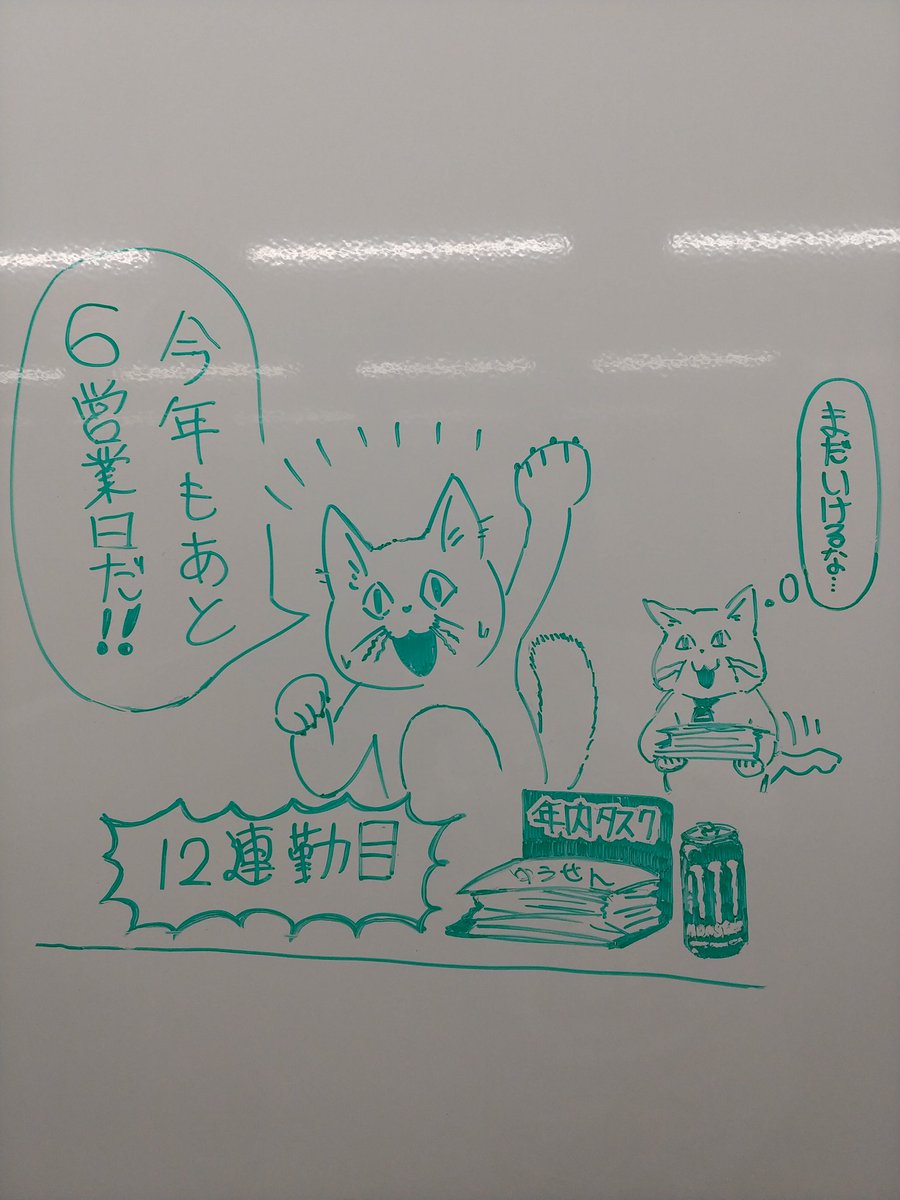 今年もあと
6営業日だ!!
まだいけるな…
12連勤目
年内タスク
ゆうせん
Monster